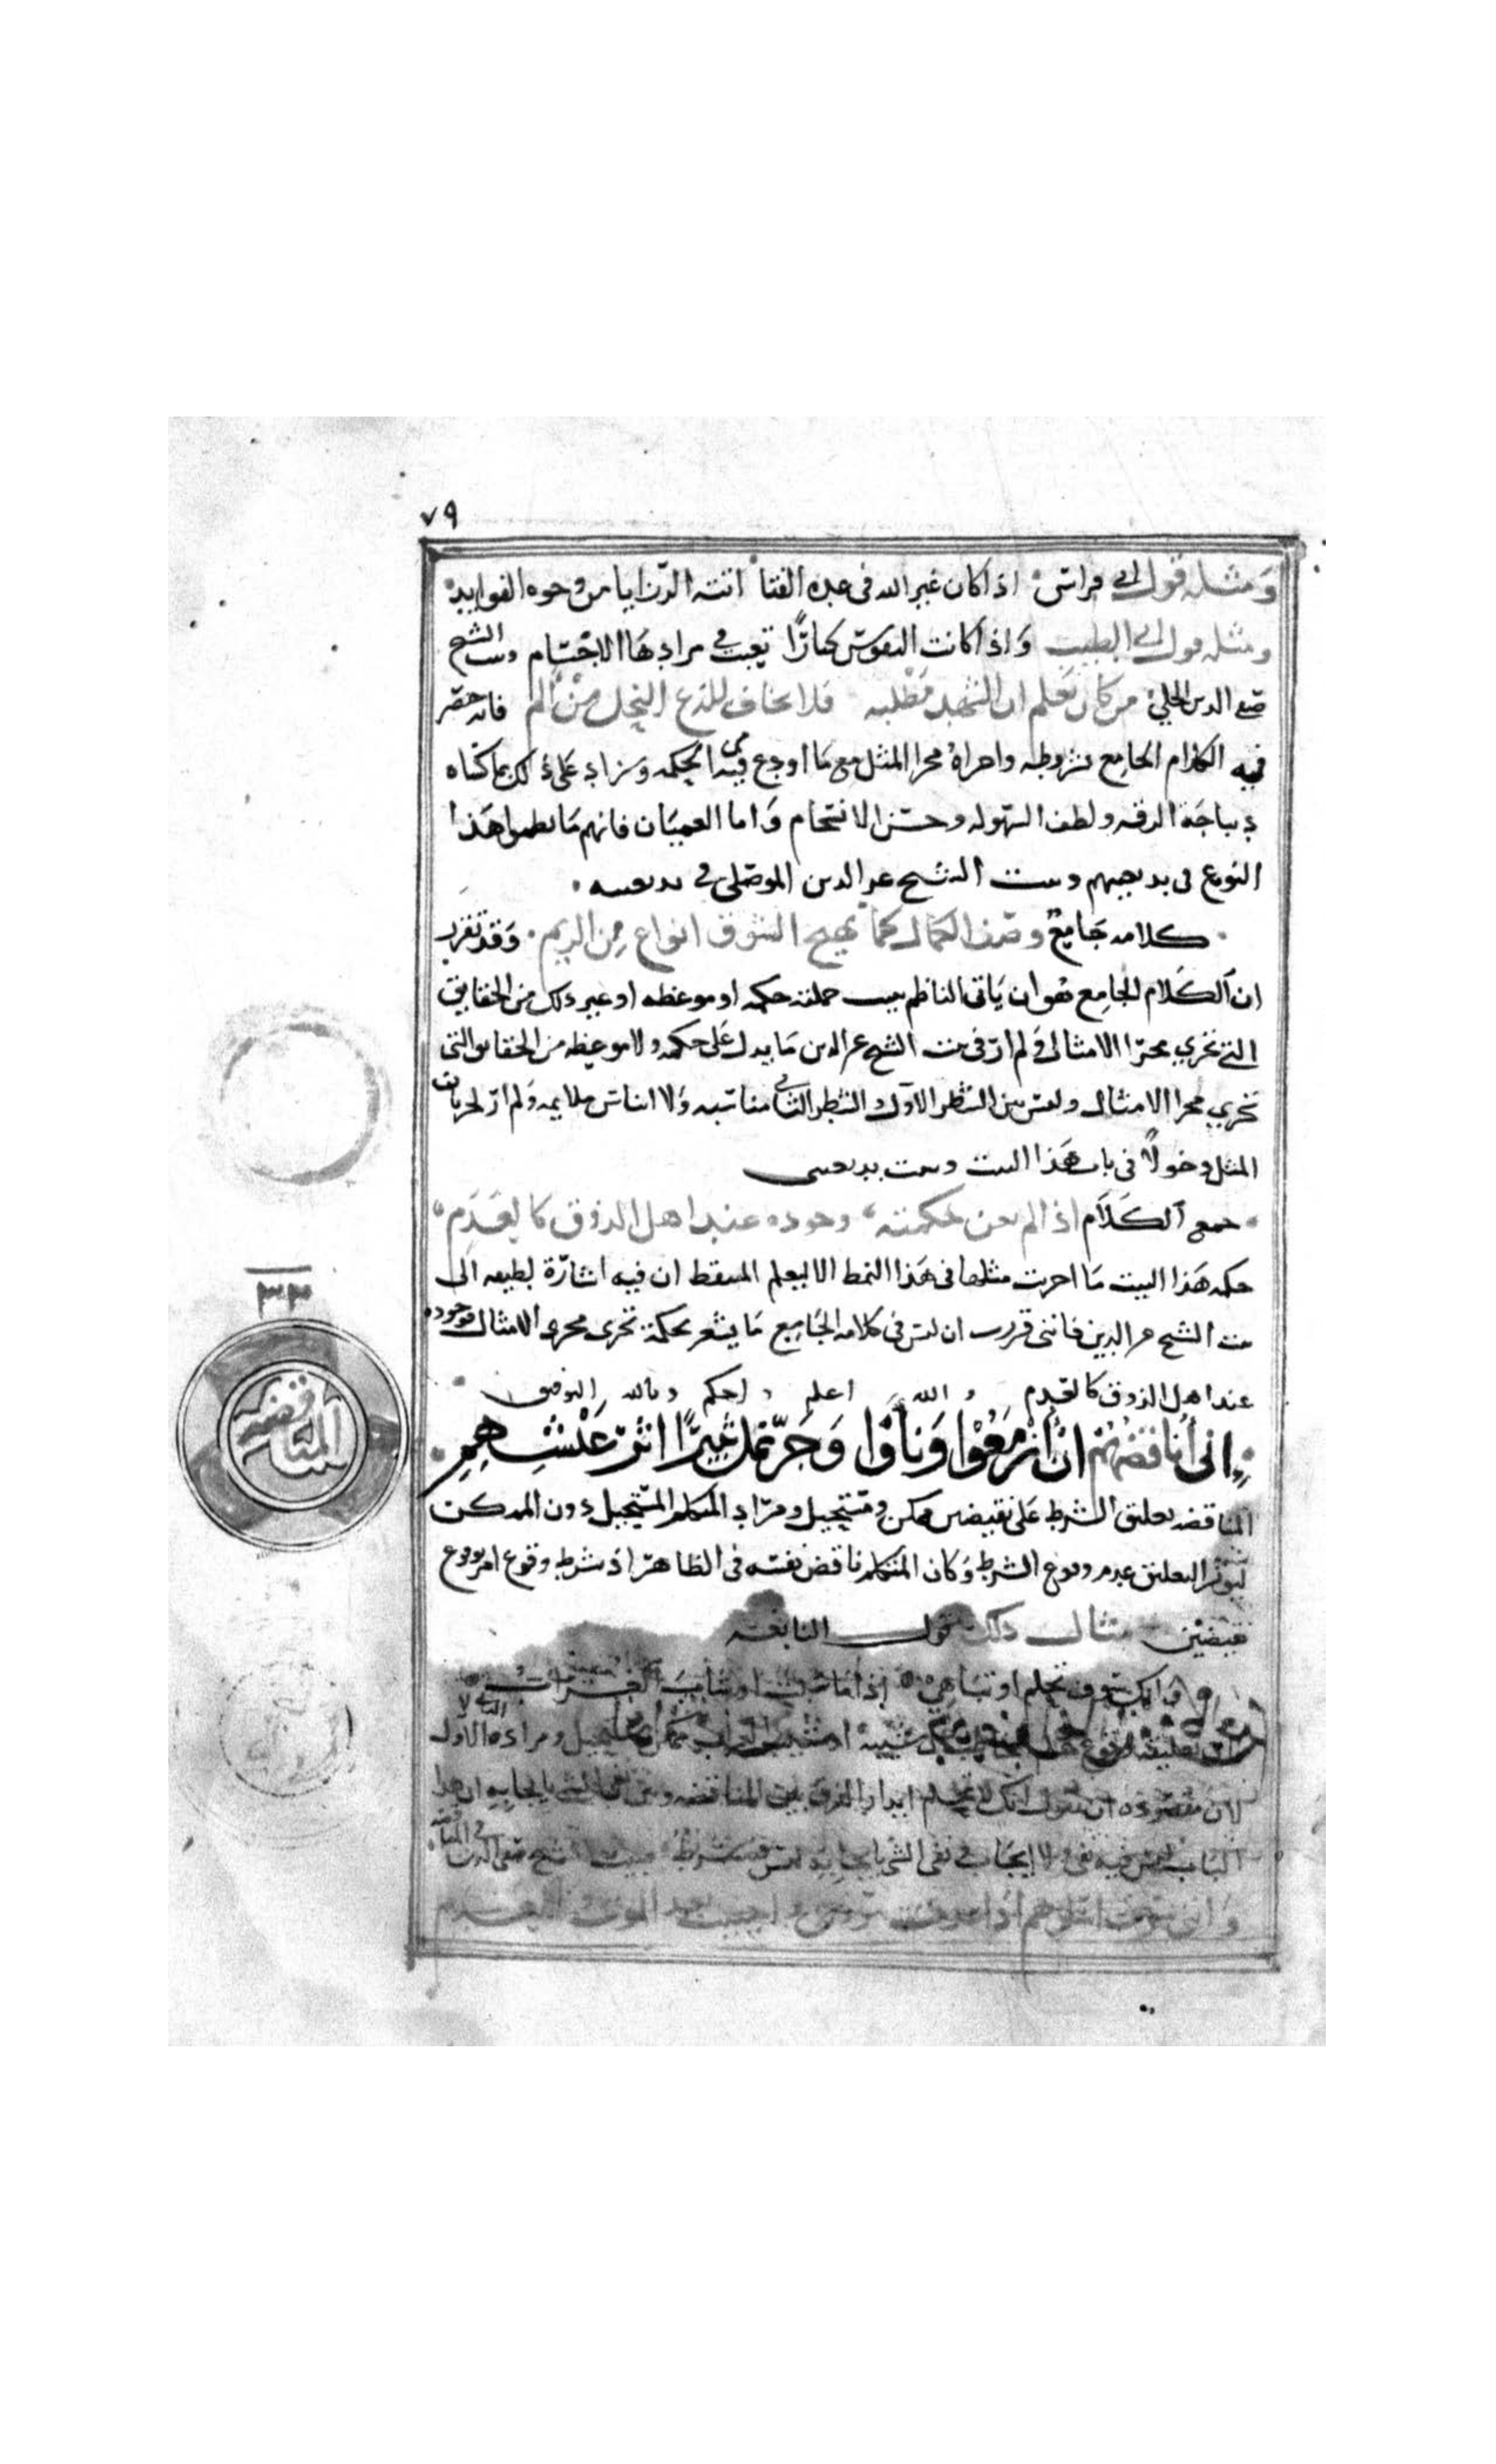 ٧٩
ومثله قول ابي فراس اذا كان غير الله في عدة الفتا اتته الرزايا من وجوه الفوايد
ومثله قول ابي الطيب واذا كانت النفوس كبارًا تعبت في مرادها الاجسام وبيت الشيخ
صفي الدين الحلي من كان يعلم ان الشهد مطلبه فلا يخاف للذع النحل من الم فانه حصر
فيه الكلام الجامع بشروطه واجراه مجرا المثل مع ما اودع فيه من الحكمه وزاد على ذلك بما كساه
ديباجة الرقه ولطف السهوله وحسن الانسجام واما العميان فانهم ما نظموا هذا
النوع في بديعيتهم وبيت الشيخ عز الدين الموصلي في بديعيته
كلامه جامع وصف الكمال كما يهيج الشوق انواع من الريم وقد تقرر
ان الكلام الجامع هو ان ياتي الناظم ببيت جملته حكمه او موعظه او غير ذلك من الحقايق
التي تجري مجرا الامثال ولم ار في بيت الشيخ عز الدين ما يدل على حكمه ولا موعظه من الحقايق التي
تجري مجرا الامثال وليس بين الشطر الاول والشطر الثاني مناسبه ولا ايناس ملايمه ولم ار لجريان
المثل دخولًا في باب هذا البيت وبيت بديعيتي
جمع الكلام اذا لم يغن حكمته وجوده عند اهل الذوق كالعدم
حكمة هذا البيت ما اجريت مثلها في هذا النمط الا ليعلم المتيقظ ان فيه اشارة لطيفه الى
بيت الشيخ عز الدين فانني قررت ان ليس في كلامه الجامع ما يشعر بحكمة تجري مجرى الامثال فوجوده
عند اهل الذوق كالعدم والله اعلم واحكم وبالله التوفيق
اني اناقضهم ان ازمعوا وناوا وجر نمل ثبيرًا اثر عيسهم
٣٣
المناقضه
المناقضه تعليق الشرط على نقيضين ممكن ومستحيل ومراد المتكلم المستحيل دون الممكن
ليوثر التعليق عدم وقوع الشرط وكان المتكلم ناقض نفسه في الظاهر اذ شرط وقوع امر بوقوع
نقيضين مثال ذلك قول النابغه
وانك سوف تحلم او تناهى اذا ما شبت او شاب الغراب
لان مقصوده ان يقول انك لا تحلم ابدا والفرق بين المناقضه وبين نفي الشي بايجابه ان هذا
الباب ليس فيه نفي ولا ايجاب ونفي الشي بايجابه ليس فيه شرط وبيت الشيخ صفي الدين في المناقضه
وانني سوف اسلوهم اذا عدمت روحي واحييت بعد الموت والعدم